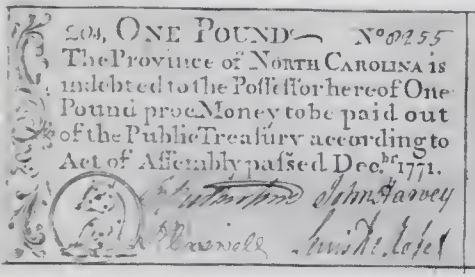 20s, ONE POUND No 8255
The Province of NORTH CAROLINA is
indebted to the Poſſeſſor hereof One
Pound proc Money to be paid out
of the Public Treaſury according to
Act of Aſſembly paſſed Dec.br 1771.
John Harvey
Lewis De Roſſet